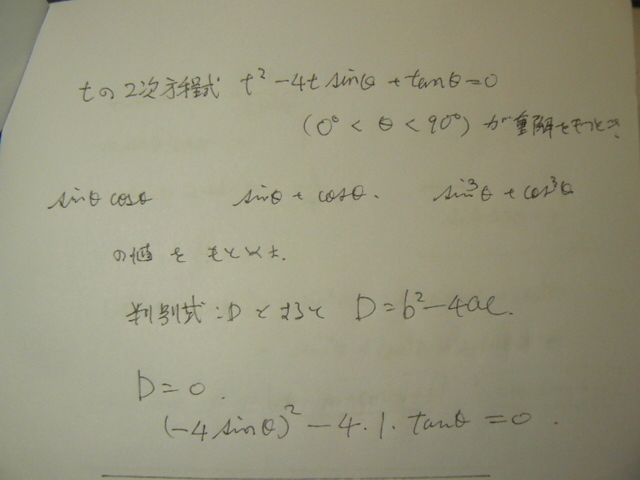 tの2次方程式 t² - 4t sinθ + tanθ = 0
(0° < θ < 90°) が重解をもつとき
sinθ cosθ sinθ + cosθ. sin³θ + cos³θ
の値をもとめよ.
判別式:Dとすると D = b² - 4ac.
D = 0.
(-4 sinθ)² - 4・1・tanθ = 0.